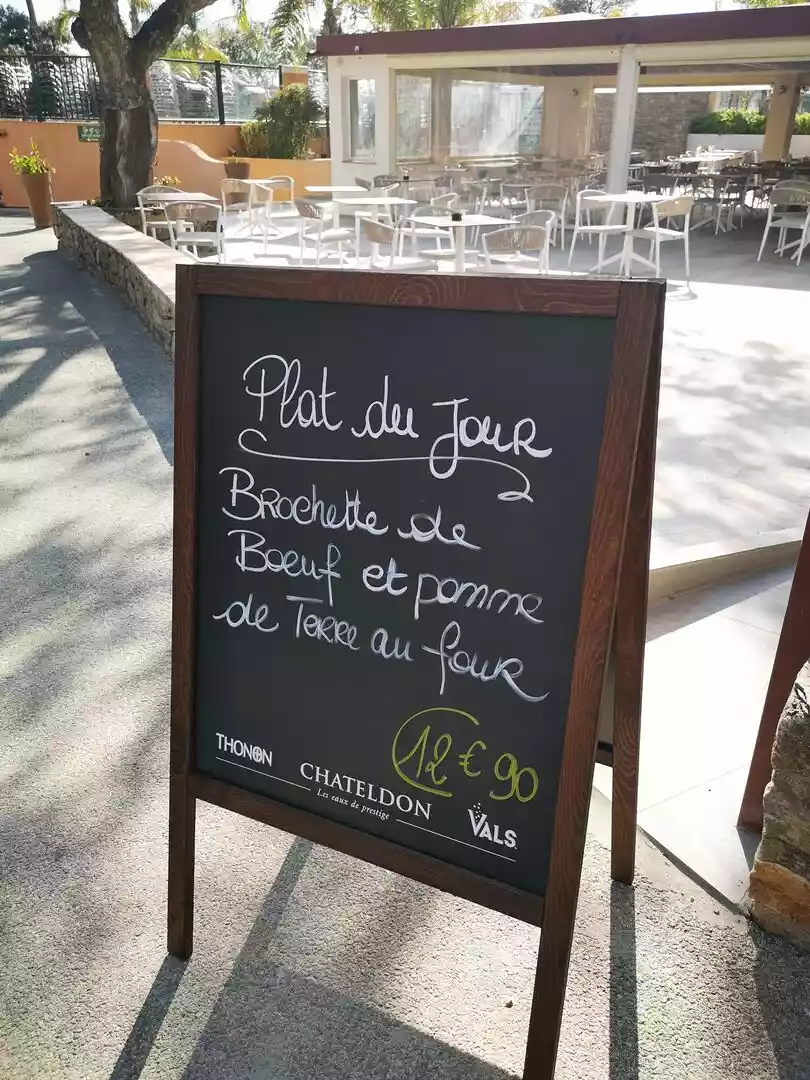 Plat du Jour
Brochette de
Boeuf et pomme
de Terre au four
12€90
THONON
CHATELDON
Les eaux de prestige
VALS